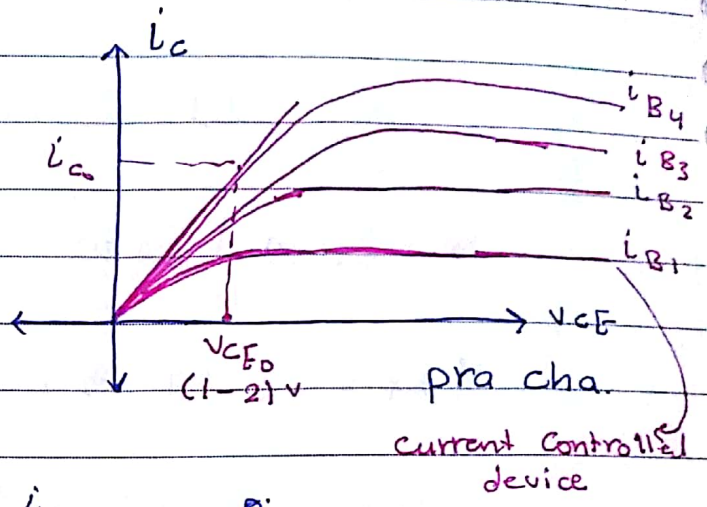 i_C
i_B4
i_C0
i_B3
i_B2
i_B1
VCE
VCE0
(1-2) v
pra cha.
current controlled
device
i